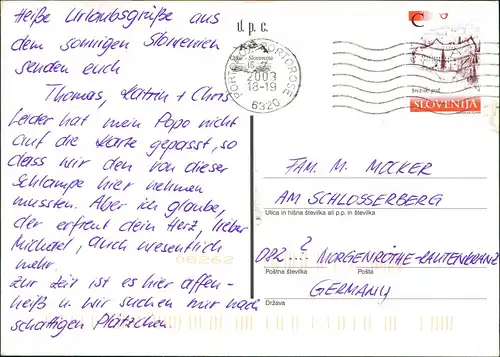 Heiße Urlaubsgrüße aus
dem sonnigen Slowenien
senden euch
Thomas, Katrin + Chris
Leider hat mein Popo nicht
auf die Karte gepasst, so
dass wir den von dieser
Schlampe hier nehmen
mussten. Aber ich glaube,
der erfreut dein Herz, lieber
Michael, auch wesentlich
mehr.
Zur Zeit ist es hier affen-
heiß u. wir suchen nur nach
schattigen Plätzchen.
U. P. C.
PORTOROSE
Slovenija
2003
18-19
6320
C
SLOVENIJA
FAM. M. MOCKER
AM SCHLOSSERBERG
Ulica in hišna številka ali p.p. in številka
DPZ ...? MORGENRÖTHE-RAUTENKRANZ
Poštna številka
Pošta
GERMANY
Država
08262